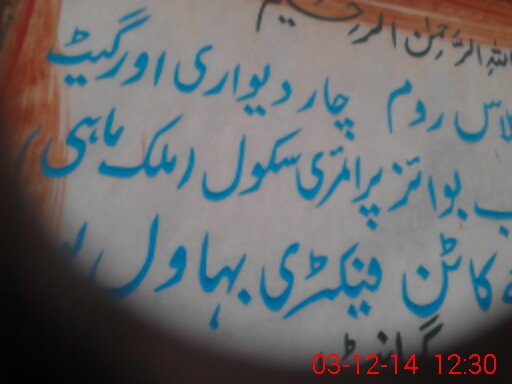 اللہ الرحمٰن الرحیم
لاس روم چار دیواری اور گیٹ
ب بوائز پرائمری سکول (ملک ماہی
کاٹن فیکٹری بہاول
03-12-14 12:30